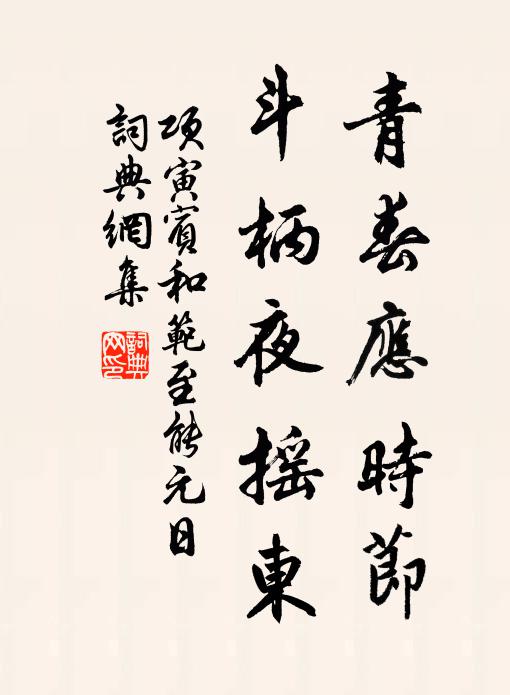 青春應時節
斗柄夜搖東
項寅賓和範至能元日
詞典網集
詞典
网印